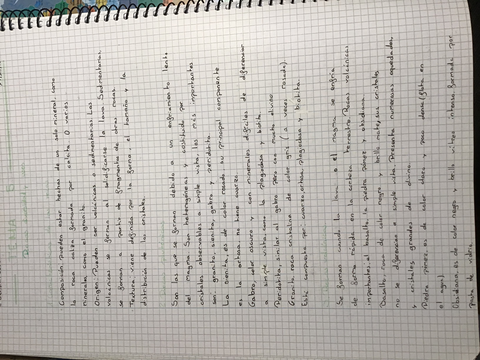 Composición: pueden estar hechas de un solo mineral como
la roca caliza formada por calcita. O varios
minerales como el granito.
Origen: Pueden ser volcánicas o sedimentarias. Las
volcánicas se forman al solidificarse la lava. Sedimentarias
se forman a partir de fragmentos de otras rocas.
Textura: viene definida por la forma, el tamaño y la
distribución de los cristales.
Son las que se forman debido a un enfriamiento lento
del magma. Son heterogéneas y constituida por
cristales observables a simple vista. Las más importantes
son: granito, sienita, gabro y peridotita
La sienita, es de color rosado su principal componente
es la ortoclasa
Gabro, color oscuro y con minerales difíciles de diferenciar
a simple vista como la plagioclasa y
Peridotita, similar al gabro pero con mucho olivino
Granito roca cristalina de color gris (a veces rosado).
Está compuesto por cuarzo ortosa, plagioclasa y biotita.
Se forman cuando la lava o el magma se enfría
de forma rápida en la corteza terrestre. Rocas volcánicas
importantes: el basalto, la piedra pómez y obsidiana
Basalto, roca de color negro y brillo mate, sus cristales
no se diferencian a simple vista. Presenta numerosas oquedades,
y cristales grandes de olivino
Piedra pómez, es de color claro y poco densa (flota en
el agua)
Obsidiana es de color negro y brillo vítreo intenso formada por
pasta de vidrio.